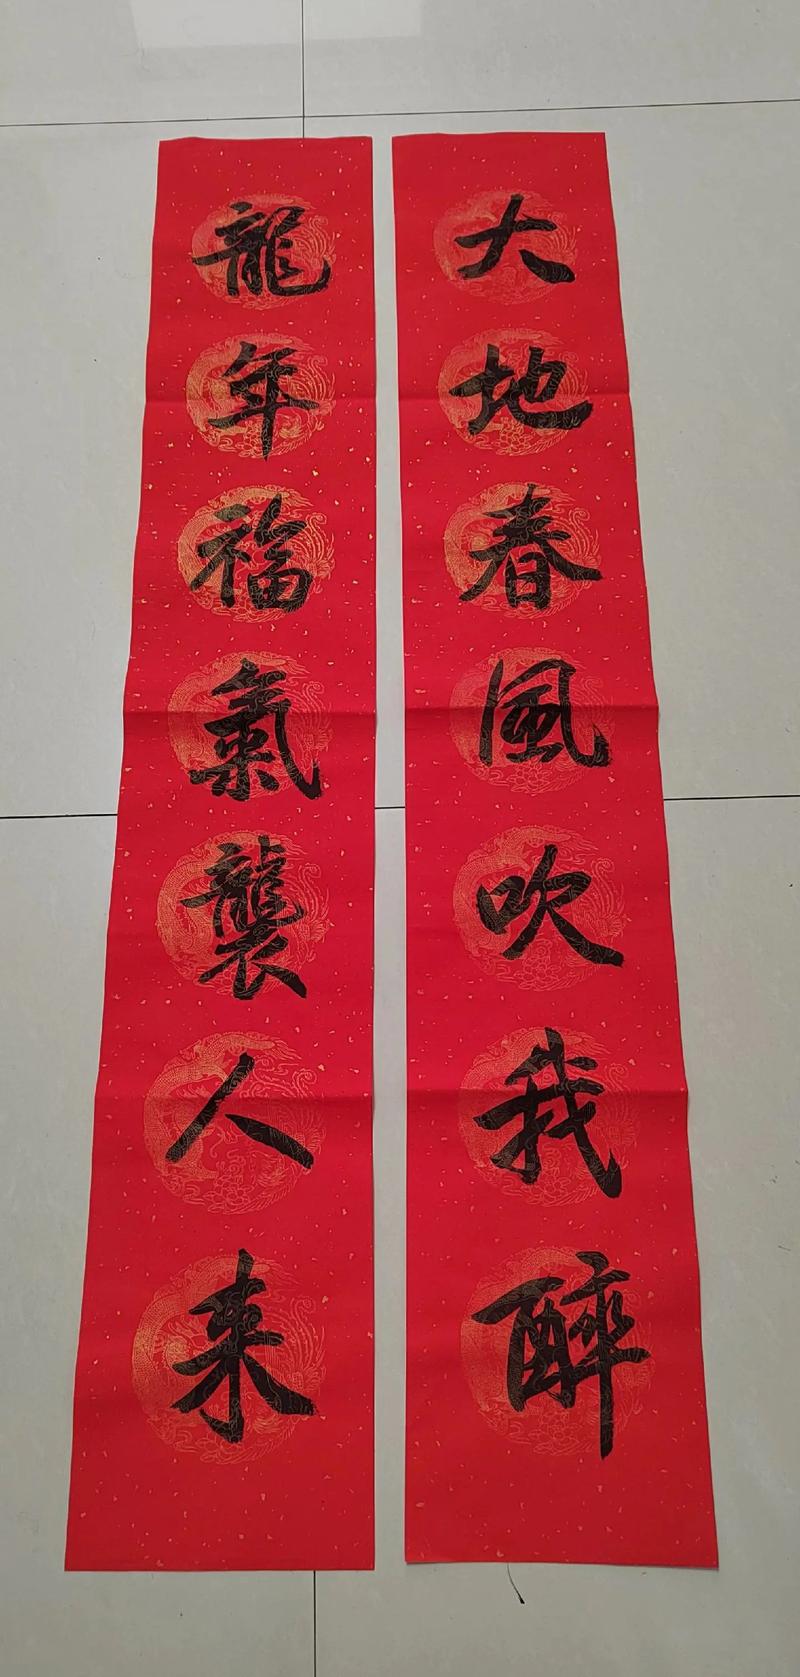 大地春風吹我醉
龍年福氣襲人来